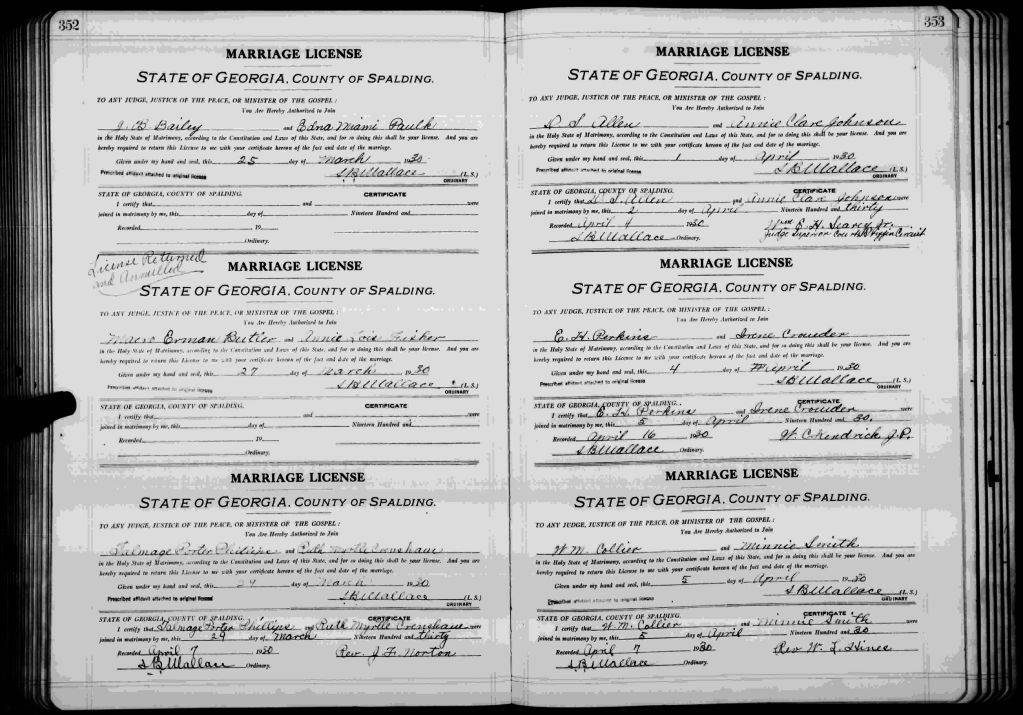 352
MARRIAGE LICENSE
STATE OF GEORGIA, COUNTY OF SPALDING.
TO ANY JUDGE, JUSTICE OF THE PEACE, OR MINISTER OF THE GOSPEL:
You Are Hereby Authorized to Join
J. B Bailey and Edna Miami Paulk
in the Holy State of Matrimony, according to the Constitution and Laws of this State, and for so doing this shall be your license. And you are
hereby required to return this License to me with your certificate hereon of the fact and date of the marriage.
Given under my hand and seal, this 25 day of March 1930
Prescribed affidavit attached to original license S B Wallace (L. S.)
ORDINARY
STATE OF GEORGIA, COUNTY OF SPALDING. CERTIFICATE
I certify that and were
joined in matrimony by me, this day of Nineteen Hundred and
Recorded 19
Ordinary.
License Returned
and Annulled
MARRIAGE LICENSE
STATE OF GEORGIA, COUNTY OF SPALDING.
TO ANY JUDGE, JUSTICE OF THE PEACE, OR MINISTER OF THE GOSPEL:
You Are Hereby Authorized to Join
Erman Butler and Annie Lois Fisher
in the Holy State of Matrimony, according to the Constitution and Laws of this State, and for so doing this shall be your license. And you are
hereby required to return this License to me with your certificate hereon of the fact and date of the marriage.
Given under my hand and seal, this 27 day of March 1930
Prescribed affidavit attached to original license S B Wallace (L. S.)
ORDINARY
STATE OF GEORGIA, COUNTY OF SPALDING. CERTIFICATE
I certify that and were
joined in matrimony by me, this day of Nineteen Hundred and
Recorded 19
Ordinary.
MARRIAGE LICENSE
STATE OF GEORGIA, COUNTY OF SPALDING.
TO ANY JUDGE, JUSTICE OF THE PEACE, OR MINISTER OF THE GOSPEL:
You Are Hereby Authorized to Join
Talmage Porter Phillips and Ruth Myrtle Crenshaw
in the Holy State of Matrimony, according to the Constitution and Laws of this State, and for so doing this shall be your license. And you are
hereby required to return this License to me with your certificate hereon of the fact and date of the marriage.
Given under my hand and seal, this 29 day of March 1930
Prescribed affidavit attached to original license S B Wallace (L. S.)
ORDINARY
STATE OF GEORGIA, COUNTY OF SPALDING. CERTIFICATE
I certify that Talmage Porter Phillips and Ruth Myrtle Crenshaw were
joined in matrimony by me, this 29 day of March Nineteen Hundred and thirty
Recorded April 7 1930 Rev. J. F. Norton
S B Wallace Ordinary.
353
MARRIAGE LICENSE
STATE OF GEORGIA, COUNTY OF SPALDING.
TO ANY JUDGE, JUSTICE OF THE PEACE, OR MINISTER OF THE GOSPEL:
You Are Hereby Authorized to Join
D. S. Allen and Annie Clare Johnson
in the Holy State of Matrimony, according to the Constitution and Laws of this State, and for so doing this shall be your license. And you are
hereby required to return this License to me with your certificate hereon of the fact and date of the marriage.
Given under my hand and seal, this 1 day of April 1930
Prescribed affidavit attached to original license S B Wallace (L. S.)
ORDINARY
STATE OF GEORGIA, COUNTY OF SPALDING. CERTIFICATE
I certify that D. S. Allen and Annie Clare Johnson were
joined in matrimony by me, this 2 day of April Nineteen Hundred and thirty
Recorded April 4 1930 E. H. Searcy Jr.
S B Wallace Ordinary. Judge Superior Courts Griffin Circuit
MARRIAGE LICENSE
STATE OF GEORGIA, COUNTY OF SPALDING.
TO ANY JUDGE, JUSTICE OF THE PEACE, OR MINISTER OF THE GOSPEL:
You Are Hereby Authorized to Join
E. H. Perkins and Irene Crowder
in the Holy State of Matrimony, according to the Constitution and Laws of this State, and for so doing this shall be your license. And you are
hereby required to return this License to me with your certificate hereon of the fact and date of the marriage.
Given under my hand and seal, this 4 day of April 1930
Prescribed affidavit attached to original license S B Wallace (L. S.)
ORDINARY
STATE OF GEORGIA, COUNTY OF SPALDING. CERTIFICATE
I certify that E. H. Perkins and Irene Crowder were
joined in matrimony by me, this 5 day of April Nineteen Hundred and 30.
Recorded April 16 1930 W. C Kendrick J. P.
S B Wallace Ordinary.
MARRIAGE LICENSE
STATE OF GEORGIA, COUNTY OF SPALDING.
TO ANY JUDGE, JUSTICE OF THE PEACE, OR MINISTER OF THE GOSPEL:
You Are Hereby Authorized to Join
W. M. Collier and Minnie Smith
in the Holy State of Matrimony, according to the Constitution and Laws of this State, and for so doing this shall be your license. And you are
hereby required to return this License to me with your certificate hereon of the fact and date of the marriage.
Given under my hand and seal, this 5 day of April 1930
Prescribed affidavit attached to original license S B Wallace (L. S.)
ORDINARY
STATE OF GEORGIA, COUNTY OF SPALDING. CERTIFICATE
I certify that W. M. Collier and Minnie Smith were
joined in matrimony by me, this 5 day of April Nineteen Hundred and 30
Recorded April 7 1930 Rev W. L. Hines
S. B. Wallace Ordinary.